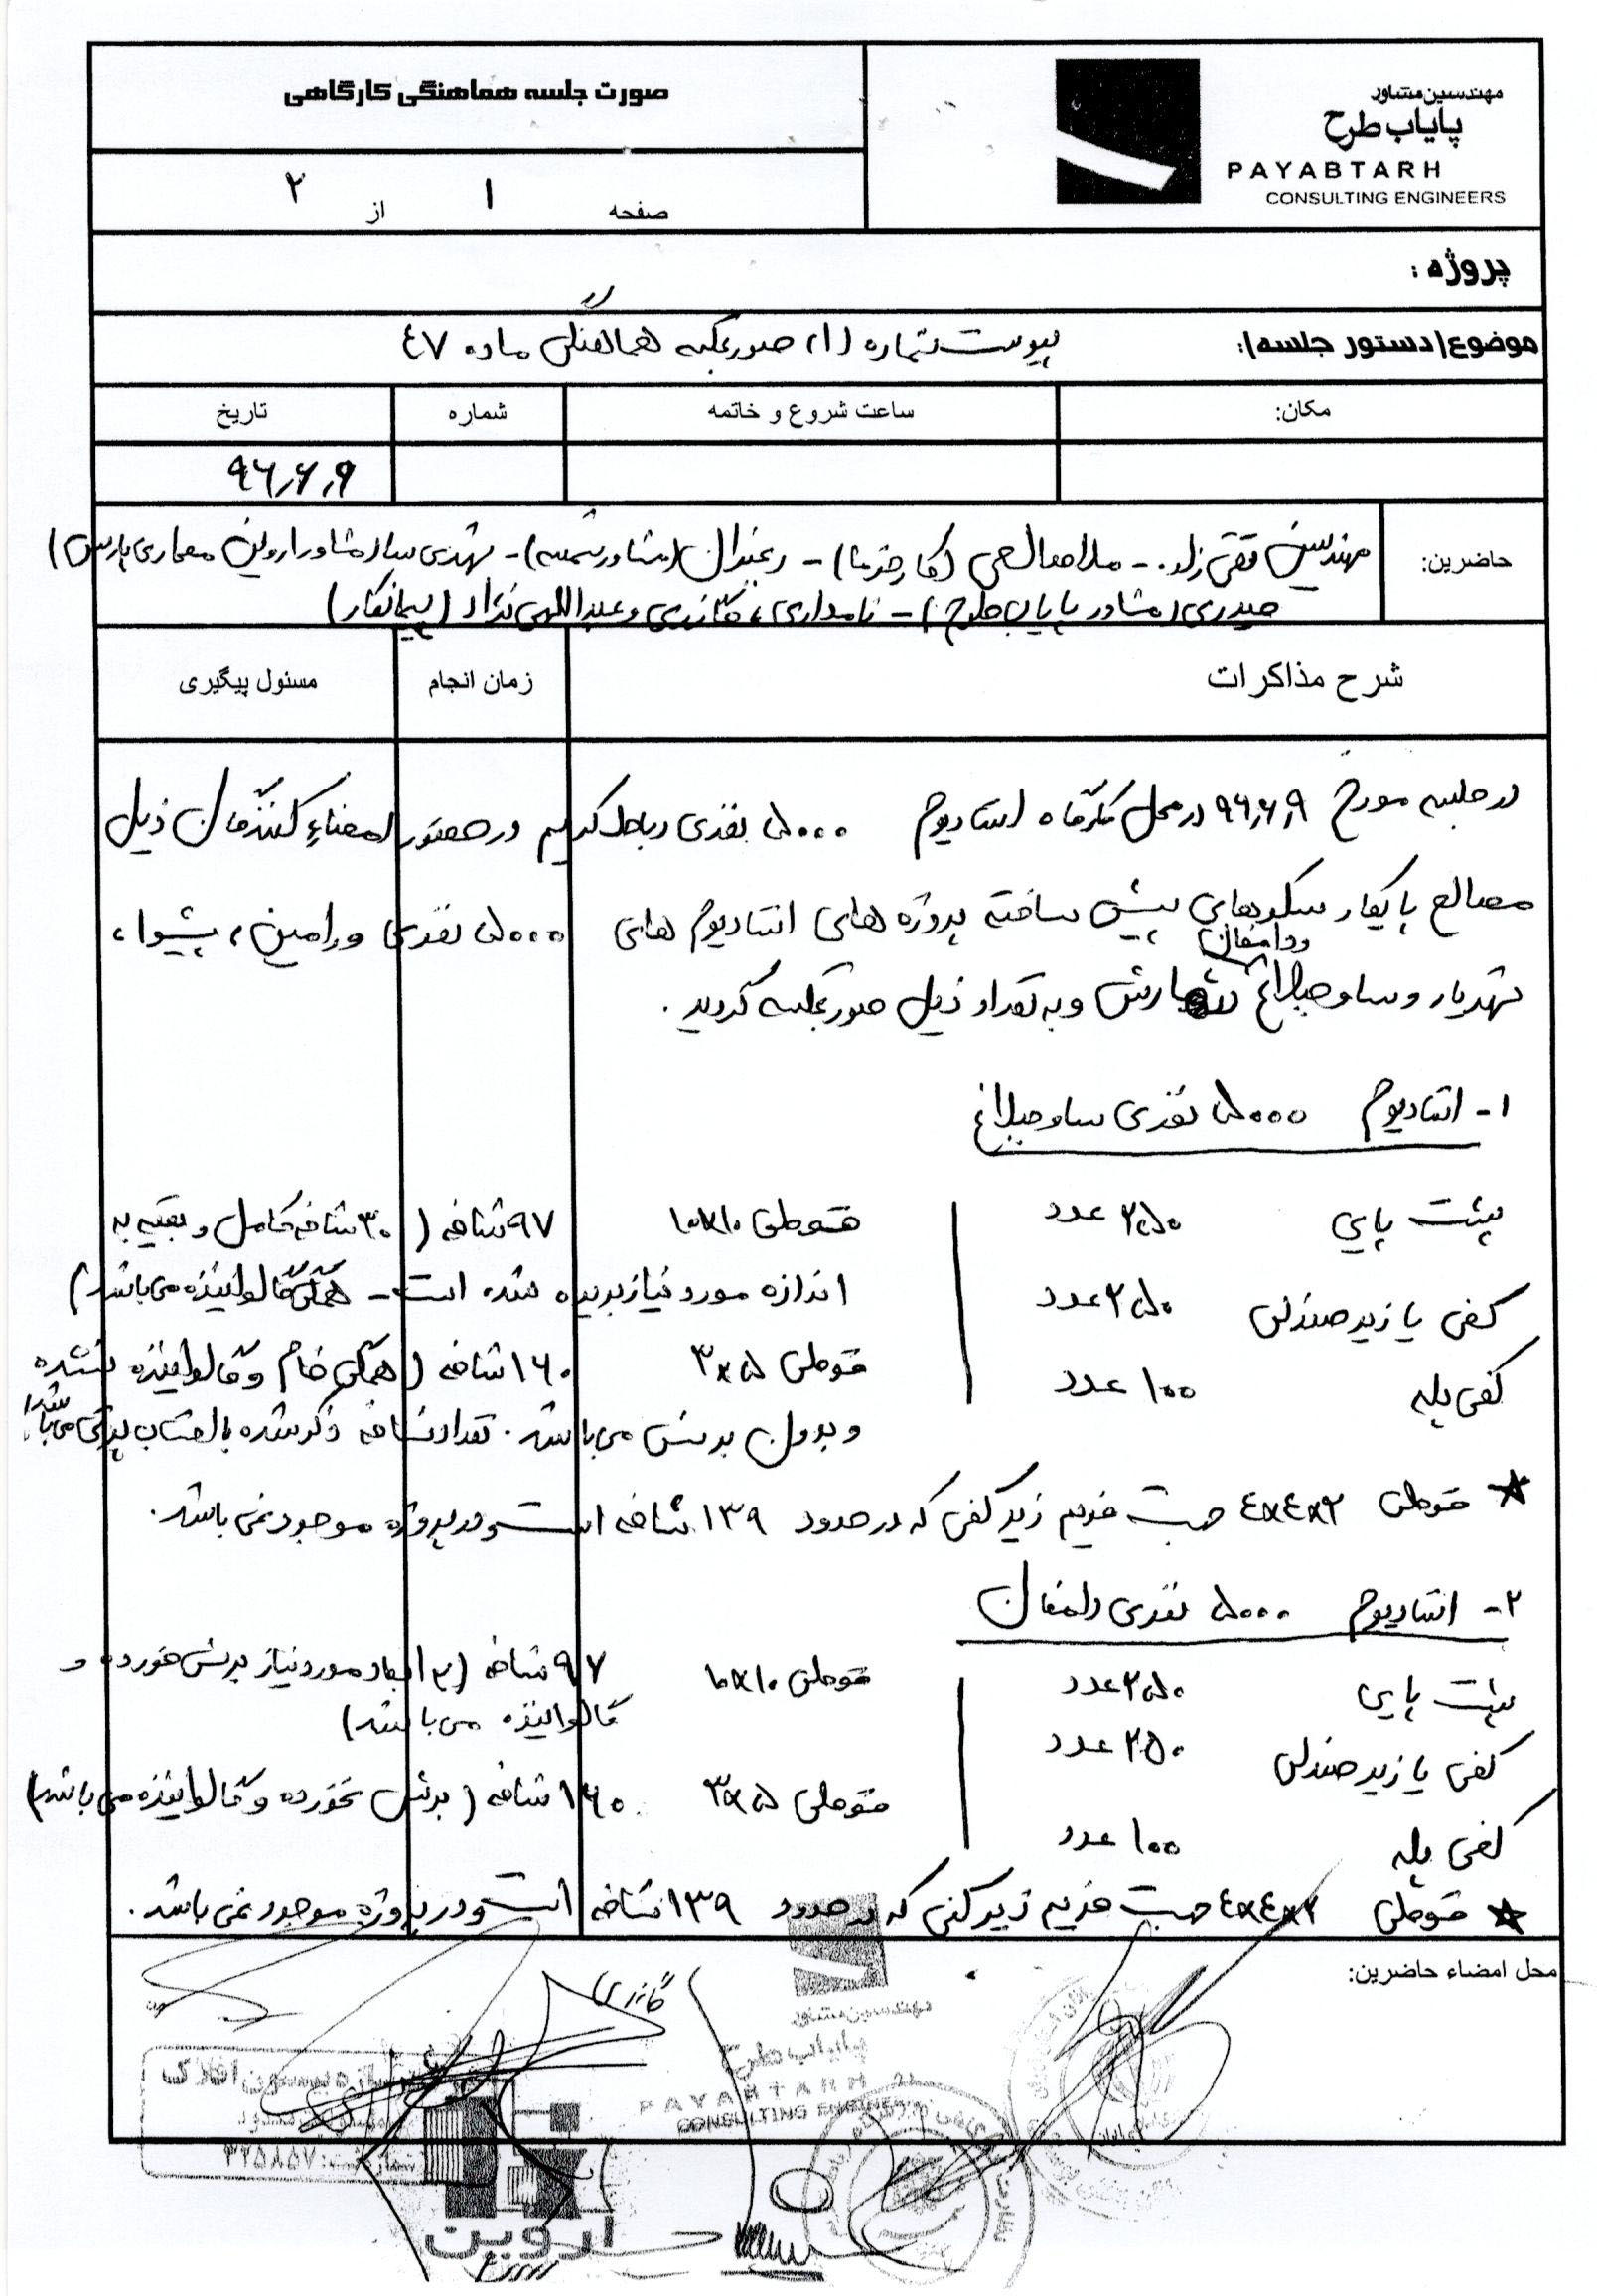 صورت جلسه هماهنگی کارگاهی
مهندسین مشاور
پایاب طرح
PAYABTARH
CONSULTING ENGINEERS
صفحه ۱ از ۲
پروژه :
موضوع(دستور جلسه): پیوست شماره (۱) صورتجلسه هماهنگی ماده ۴۷
مکان: ساعت شروع و خاتمه شماره تاریخ
۹۶,۶,۹
حاضرین: مهندسین تقی زاده - ملاصالحی (کارفرما) - (مشاور شمسه) - (مشاور اروین معماری پارس)
حیدری (مشاور پایاب طرح) - نامداری، گاژری و عبداللهی نژاد (پیمانکار)
شرح مذاکرات زمان انجام مسئول پیگیری
در جلسه مورخ ۹۶,۶,۹ در محل کارگاه استادیوم ۵۰۰۰ نفری رباط کریم در حضور امضاء کنندگان ذیل
مصالح پایکار سکوهای پیش ساخته پروژه های استادیوم های ۵۰۰۰ نفری ورامین، پیشوا،
و دامغان
شهریار و ساوجبلاغ شمارش و به تعداد ذیل صورتجلسه گردید.
۱- استادیوم ۵۰۰۰ نفری ساوجبلاغ
پشت پایی ۲۵۰ عدد قوطی ۱۰×۱۰ ۹۷ شاخه (۳۰ شاخه کامل و بقیه به
اندازه مورد نیاز بریده شده است - همگی گالوانیزه می باشد)
کفی یا زیر صندلی ۲۵۰ عدد
قوطی ۳×۵ ۱۶۰ شاخه (همگی خام و گالوانیزه نشده
کفی پله ۱۰۰ عدد
و بدون برش می باشد. تعداد شاخه ذکر شده با احتساب پرتی می باشد)
* قوطی ۴×۴×۲ جهت فریم زیر کفی که در حدود ۱۳۹ شاخه است و در پروژه موجود نمی باشد.
۲- استادیوم ۵۰۰۰ نفری دامغان
پشت پایی ۲۵۰ عدد قوطی ۱۰×۱۰ ۹۷ شاخه (به ابعاد مورد نیاز برش خورده و
گالوانیزه می باشد)
کفی یا زیر صندلی ۲۵۰ عدد
قوطی ۳×۵ ۱۶۰ شاخه (برش نخورده و گالوانیزه می باشد)
کفی پله ۱۰۰ عدد
* قوطی ۴×۴×۲ جهت فریم زیر کفی که در حدود ۱۳۹ شاخه است و در پروژه موجود نمی باشد.
محل امضاء حاضرین:
گاژری
مهندسین مشاور
پایاب طرح
PAYABTARH
CONSULTING ENGINEERS
۳۲۵۸۵۷
اروین